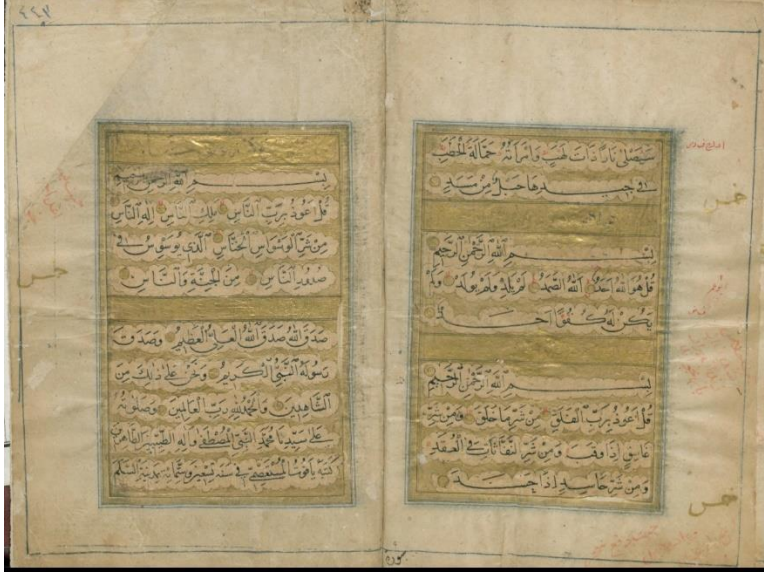 سَيَصْلَىٰ نَارًا ذَاتَ لَهَبٍ وَامْرَأَتُهُ حَمَّالَةَ الْحَطَبِ
فِي جِيدِهَا حَبْلٌ مِنْ مَسَدٍ
بِسْمِ اللَّهِ الرَّحْمَنِ الرَّحِيمِ
قُلْ هُوَ اللَّهُ أَحَدٌ اللَّهُ الصَّمَدُ لَمْ يَلِدْ وَلَمْ يُولَدْ وَلَمْ
يَكُنْ لَهُ كُفُوًا أَحَدٌ
بِسْمِ اللَّهِ الرَّحْمَنِ الرَّحِيمِ
قُلْ أَعُوذُ بِرَبِّ الْفَلَقِ مِنْ شَرِّ مَا خَلَقَ وَمِنْ شَرِّ
غَاسِقٍ إِذَا وَقَبَ وَمِنْ شَرِّ النَّفَّاثَاتِ فِي الْعُقَدِ
وَمِنْ شَرِّ حَاسِدٍ إِذَا حَسَدَ
سورة
٤٤٣
بِسْمِ اللَّهِ الرَّحْمَنِ الرَّحِيمِ
قُلْ أَعُوذُ بِرَبِّ النَّاسِ مَلِكِ النَّاسِ إِلَهِ النَّاسِ
مِنْ شَرِّ الْوَسْوَاسِ الْخَنَّاسِ الَّذِي يُوَسْوِسُ فِي
صُدُورِ النَّاسِ مِنَ الْجِنَّةِ وَالنَّاسِ
صَدَقَ اللَّهُ صَدَقَ اللَّهُ الْعَلِيُّ الْعَظِيمُ وَصَدَقَ
رَسُولُهُ النَّبِيُّ الْكَرِيمُ وَنَحْنُ عَلَى ذَلِكَ مِنَ
الشَّاهِدِينَ وَالْحَمْدُ لِلَّهِ رَبِّ الْعَالَمِينَ وَصَلَوَاتُهُ
عَلَى سَيِّدِنَا مُحَمَّدٍ النَّبِيِّ الْمُصْطَفَى وَآلِهِ الطَّيِّبِينَ الطَّاهِرِينَ
كَتَبَهُ يَاقُوتُ الْمُسْتَعْصِمِيُّ فِي سَنَةِ تِسْعِينَ وَسِتِّمِائَةٍ بِمَدِينَةِ السَّلَامِ